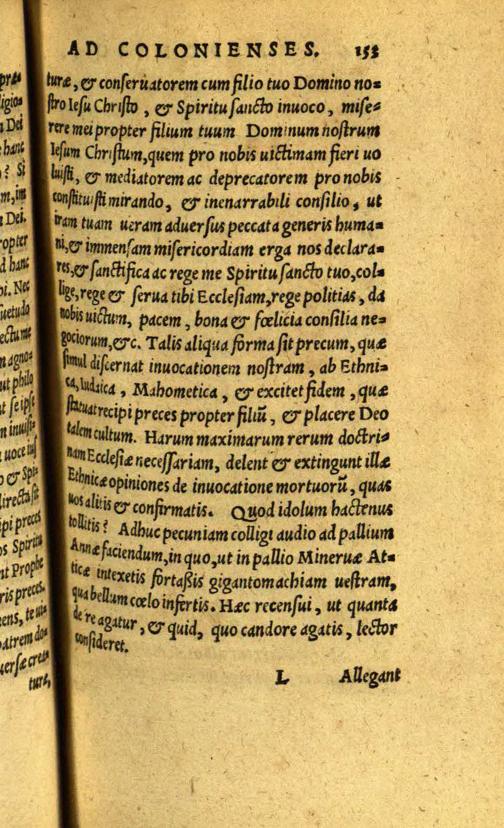 AD COLONIENSES. 153
turæ, & conseruatorem cum filio tuo Domino no=
stro Iesu Christo, & Spiritu sancto inuoco, mise=
rere mei propter filium tuum Dominum nostrum
Iesum Christum, quem pro nobis uictimam fieri uo
luisti, & mediatorem ac deprecatorem pro nobis
constituisti mirando, & inenarrabili consilio, ut
iram tuam ueram aduersus peccata generis huma=
ni, & immensam misericordiam erga nos declara=
res, & sanctifica ac rege me Spiritu sancto tuo, col=
lige, rege & serua tibi Ecclesiam, rege politias, da
nobis uictum, pacem, bona & fœlicia consilia ne=
gociorum, &c. Talis aliqua forma sit precum, quæ
simul discernat inuocationem nostram, ab Ethni=
ca, Iudaica, Mahometica, & excitet fidem, quæ
statuat recipi preces propter filiū, & placere Deo
talem cultum. Harum maximarum rerum doctri=
nam Ecclesiæ necessariam, delent & extingunt illæ
Ethnicæ opiniones de inuocatione mortuorū, quas
uos alitis & confirmatis. Quod idolum hactenus
tollitis? Adhuc pecuniam colligi audio ad pallium
Annæ faciendum, in quo, ut in pallio Mineruæ At=
ticæ intexetis fortaßis gigantomachiam uestram,
qua bellum cœlo infertis. Hæc recensui, ut quanta
de re agatur, & quid, quo candore agatis, lector
consideret.
L Allegant